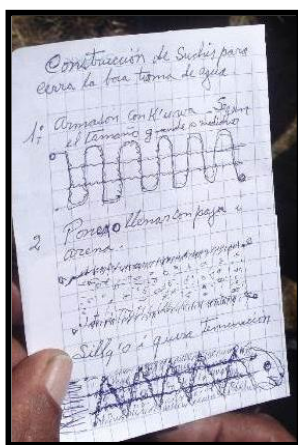 Construcción de Suchis para
cerra la boca toma de agua
1: Armason con K'eswa Segun
el tamaño grande o mediano
2 Ponexo llenar con paja y
arena.
Sillq'o i quise